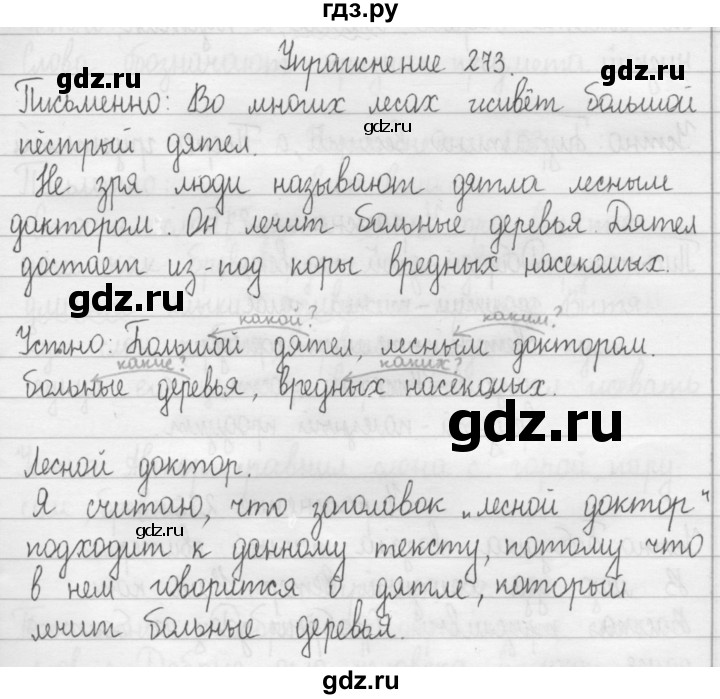 гдз.ру
Упражнение 273.
gdz.ru
gdz.ru
Письменно: Во многих лесах живёт большой
gdz.ru
пёстрый дятел.
gdz.ru
Не зря люди называют дятла лесным
доктором Он лечит больные деревья Дятел
достает из-под коры вредных насекомых.
gdz.ru
какой? каким?
Устно: Большой дятел, лесным доктором.
какие? каких?
больные деревья, вредных насекомых.
gdz.ru
Лесной доктор.
Я считаю, что заголовок „лесной доктор"
gdz.ru
подходит к данному тексту, потому что
в нем говорится о дятле, который
gdz.ru
лечит больные деревья.
gdz.ru